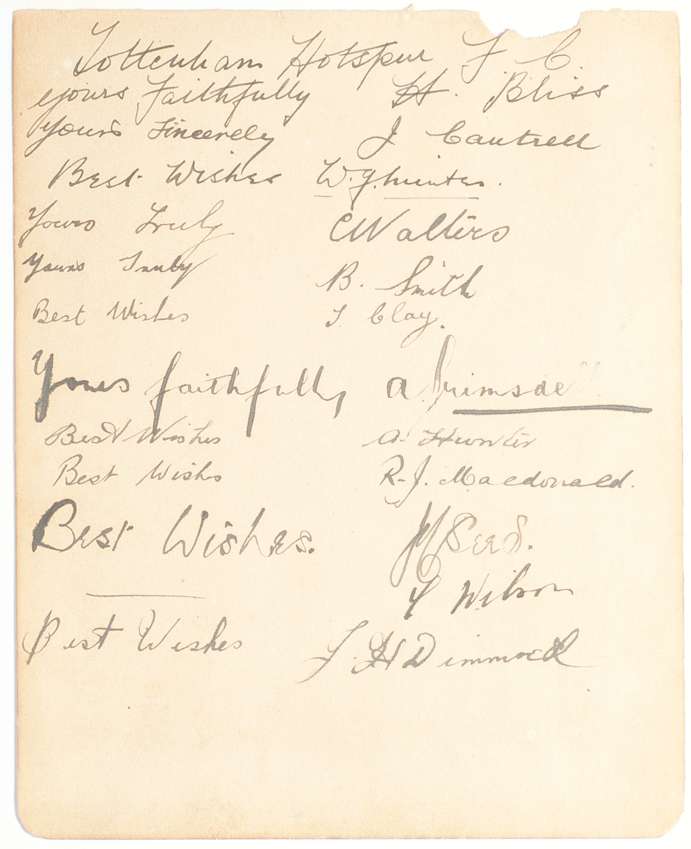 Tottenham Hotspur F C.
Yours Faithfully H. Bliss
Yours Sincerely J Cantrell
Best Wishes W. J. Hunter.
Yours Truly C Walters
Yours Truly B. Smith
Best Wishes T Clay.
Yours faithfully A Grimsdell
Best Wishes A. Hunter
Best Wishs R. J. Macdonald.
Best Wishes. J Seed.
C Wilson
Best Wishes J. H Dimmock